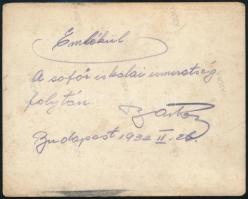 Emlékül
A sofőr iskolai ismeretség
folytán
Budapest 1932 II. 26.